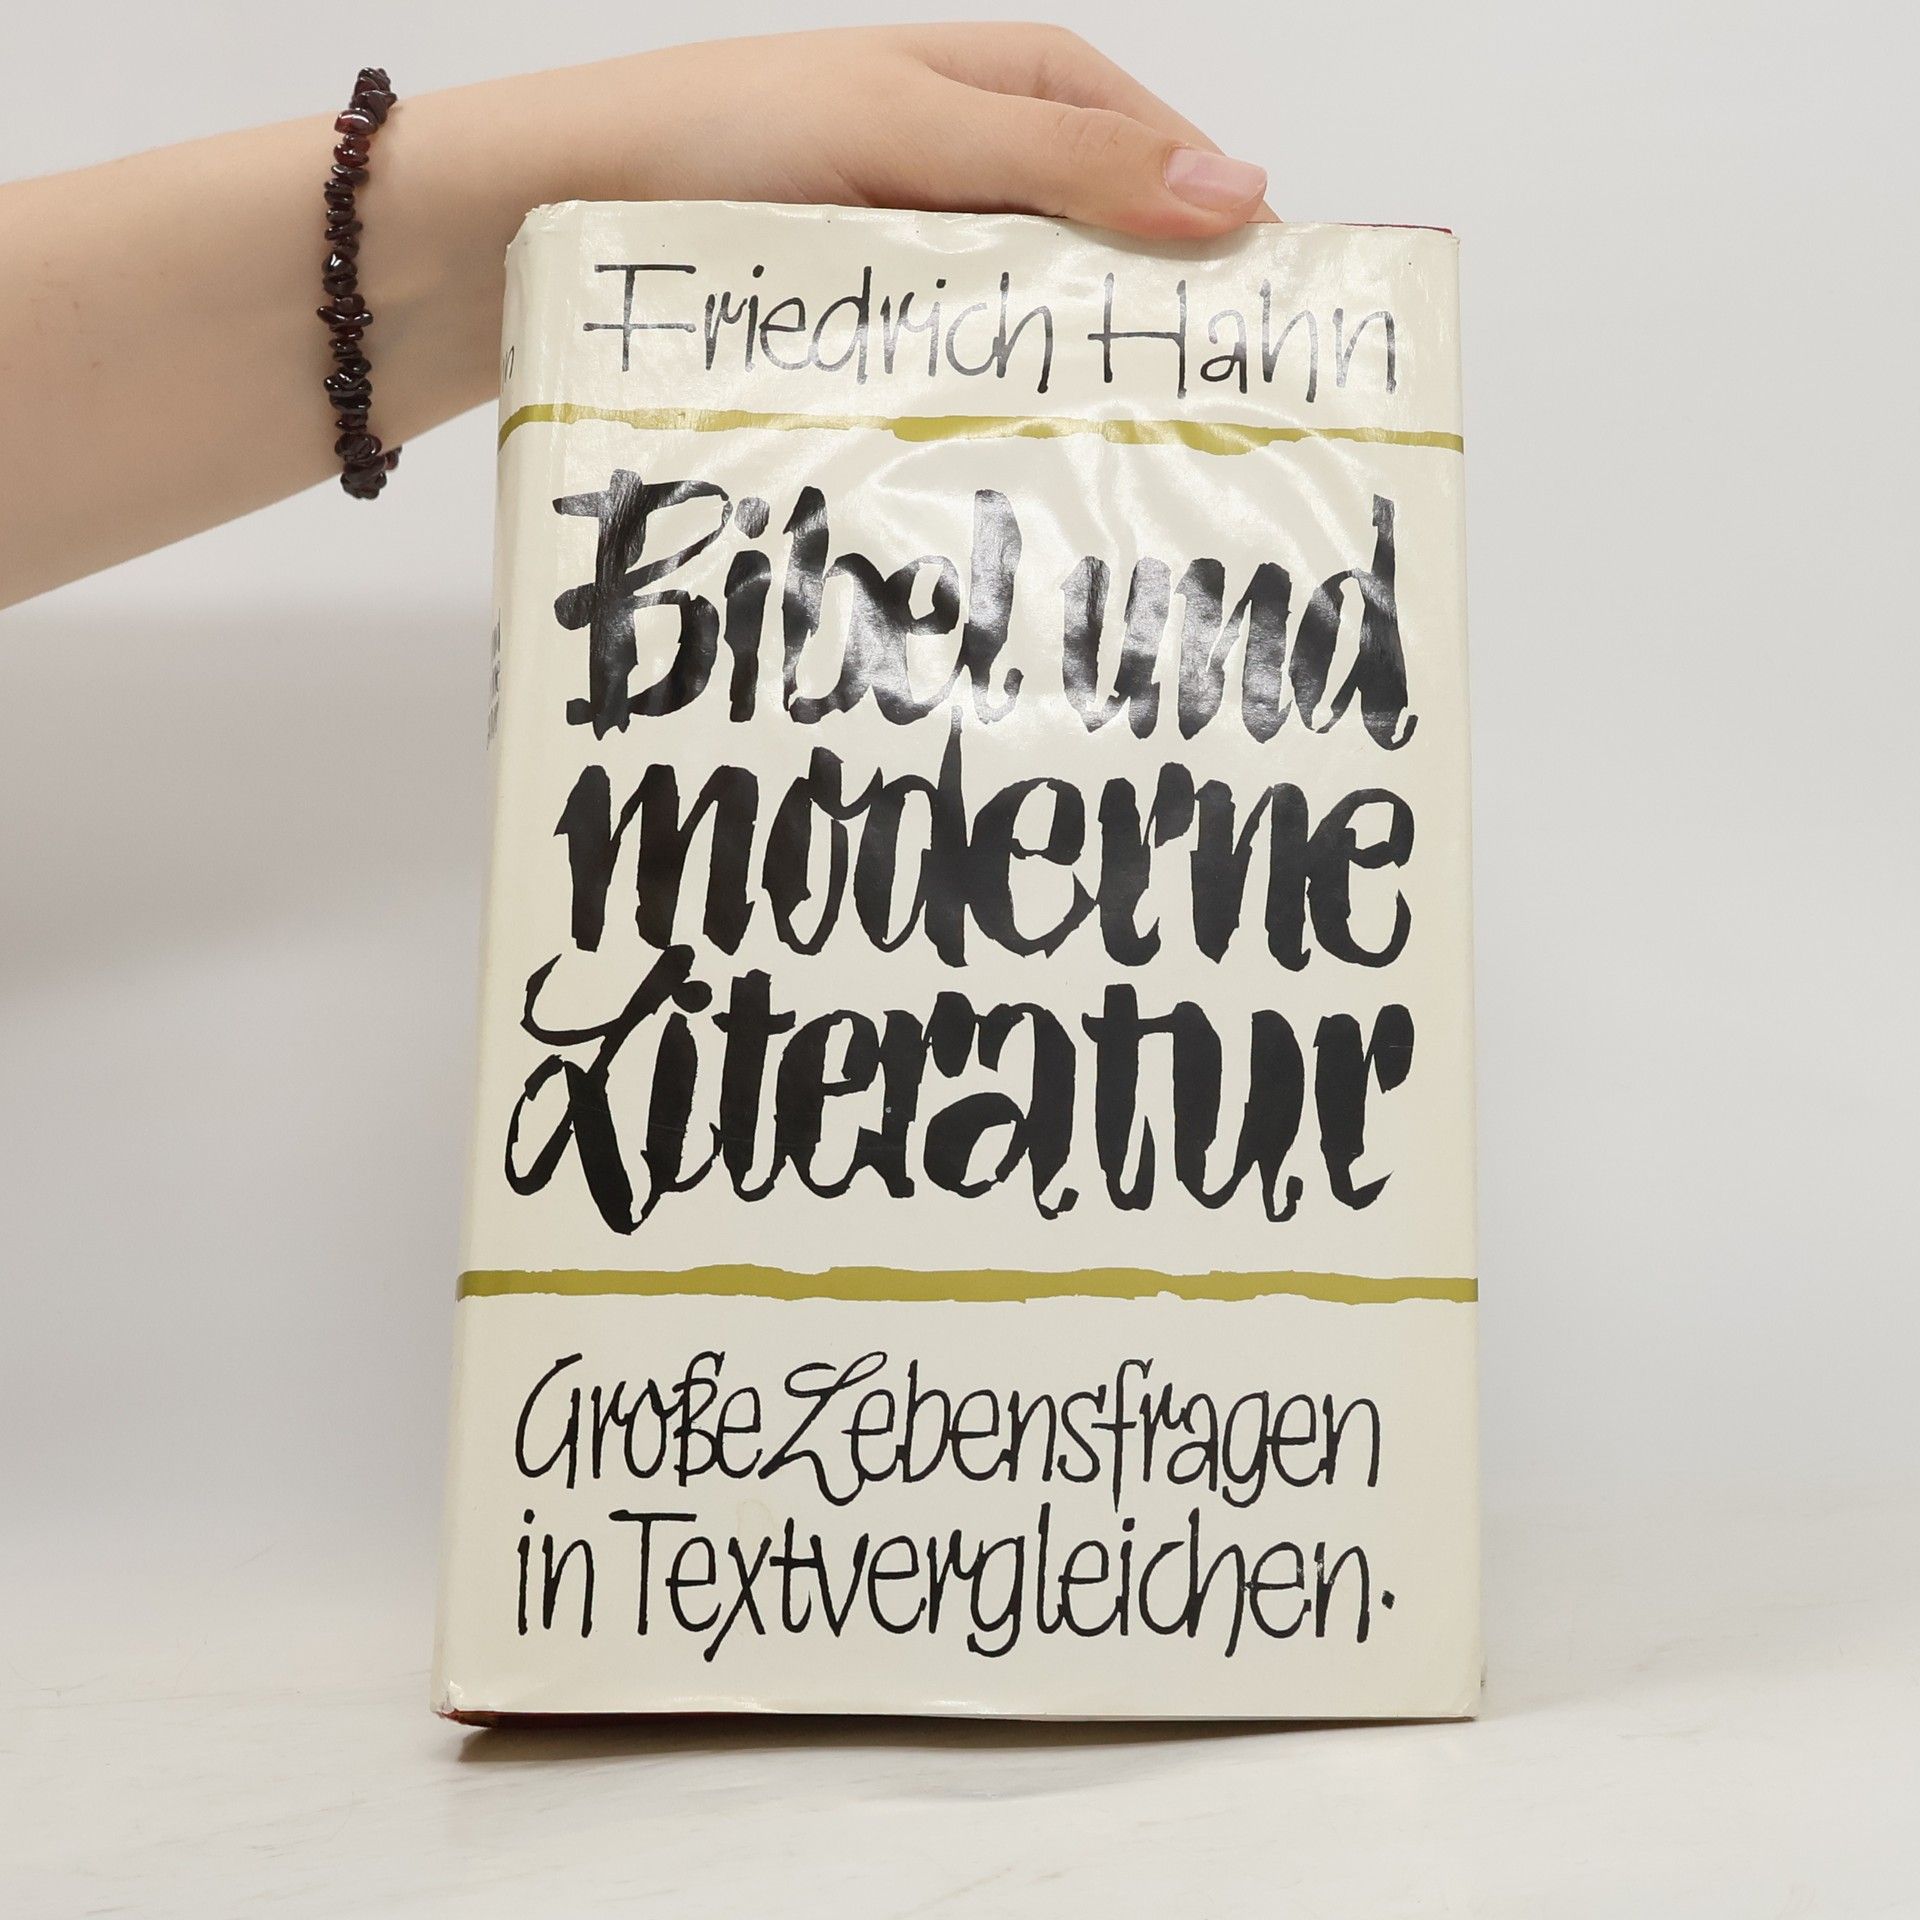 Friedrich Hahn
Bibel und
moderne
Literatur
Große Lebensfragen
in Textvergleichen.